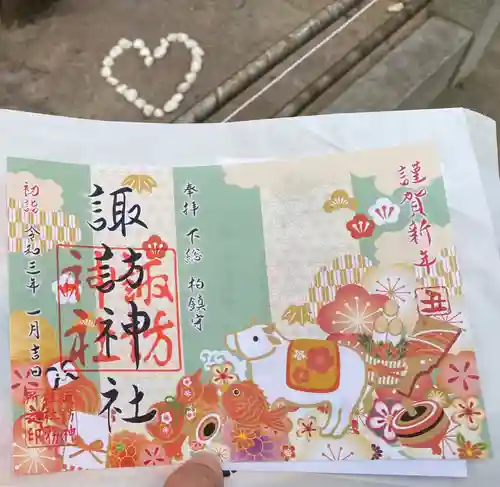 謹賀新年
丑
奉拝 下総 柏鎮守
諏訪神社
諏訪
神社
初詣 令和三年 一月吉日